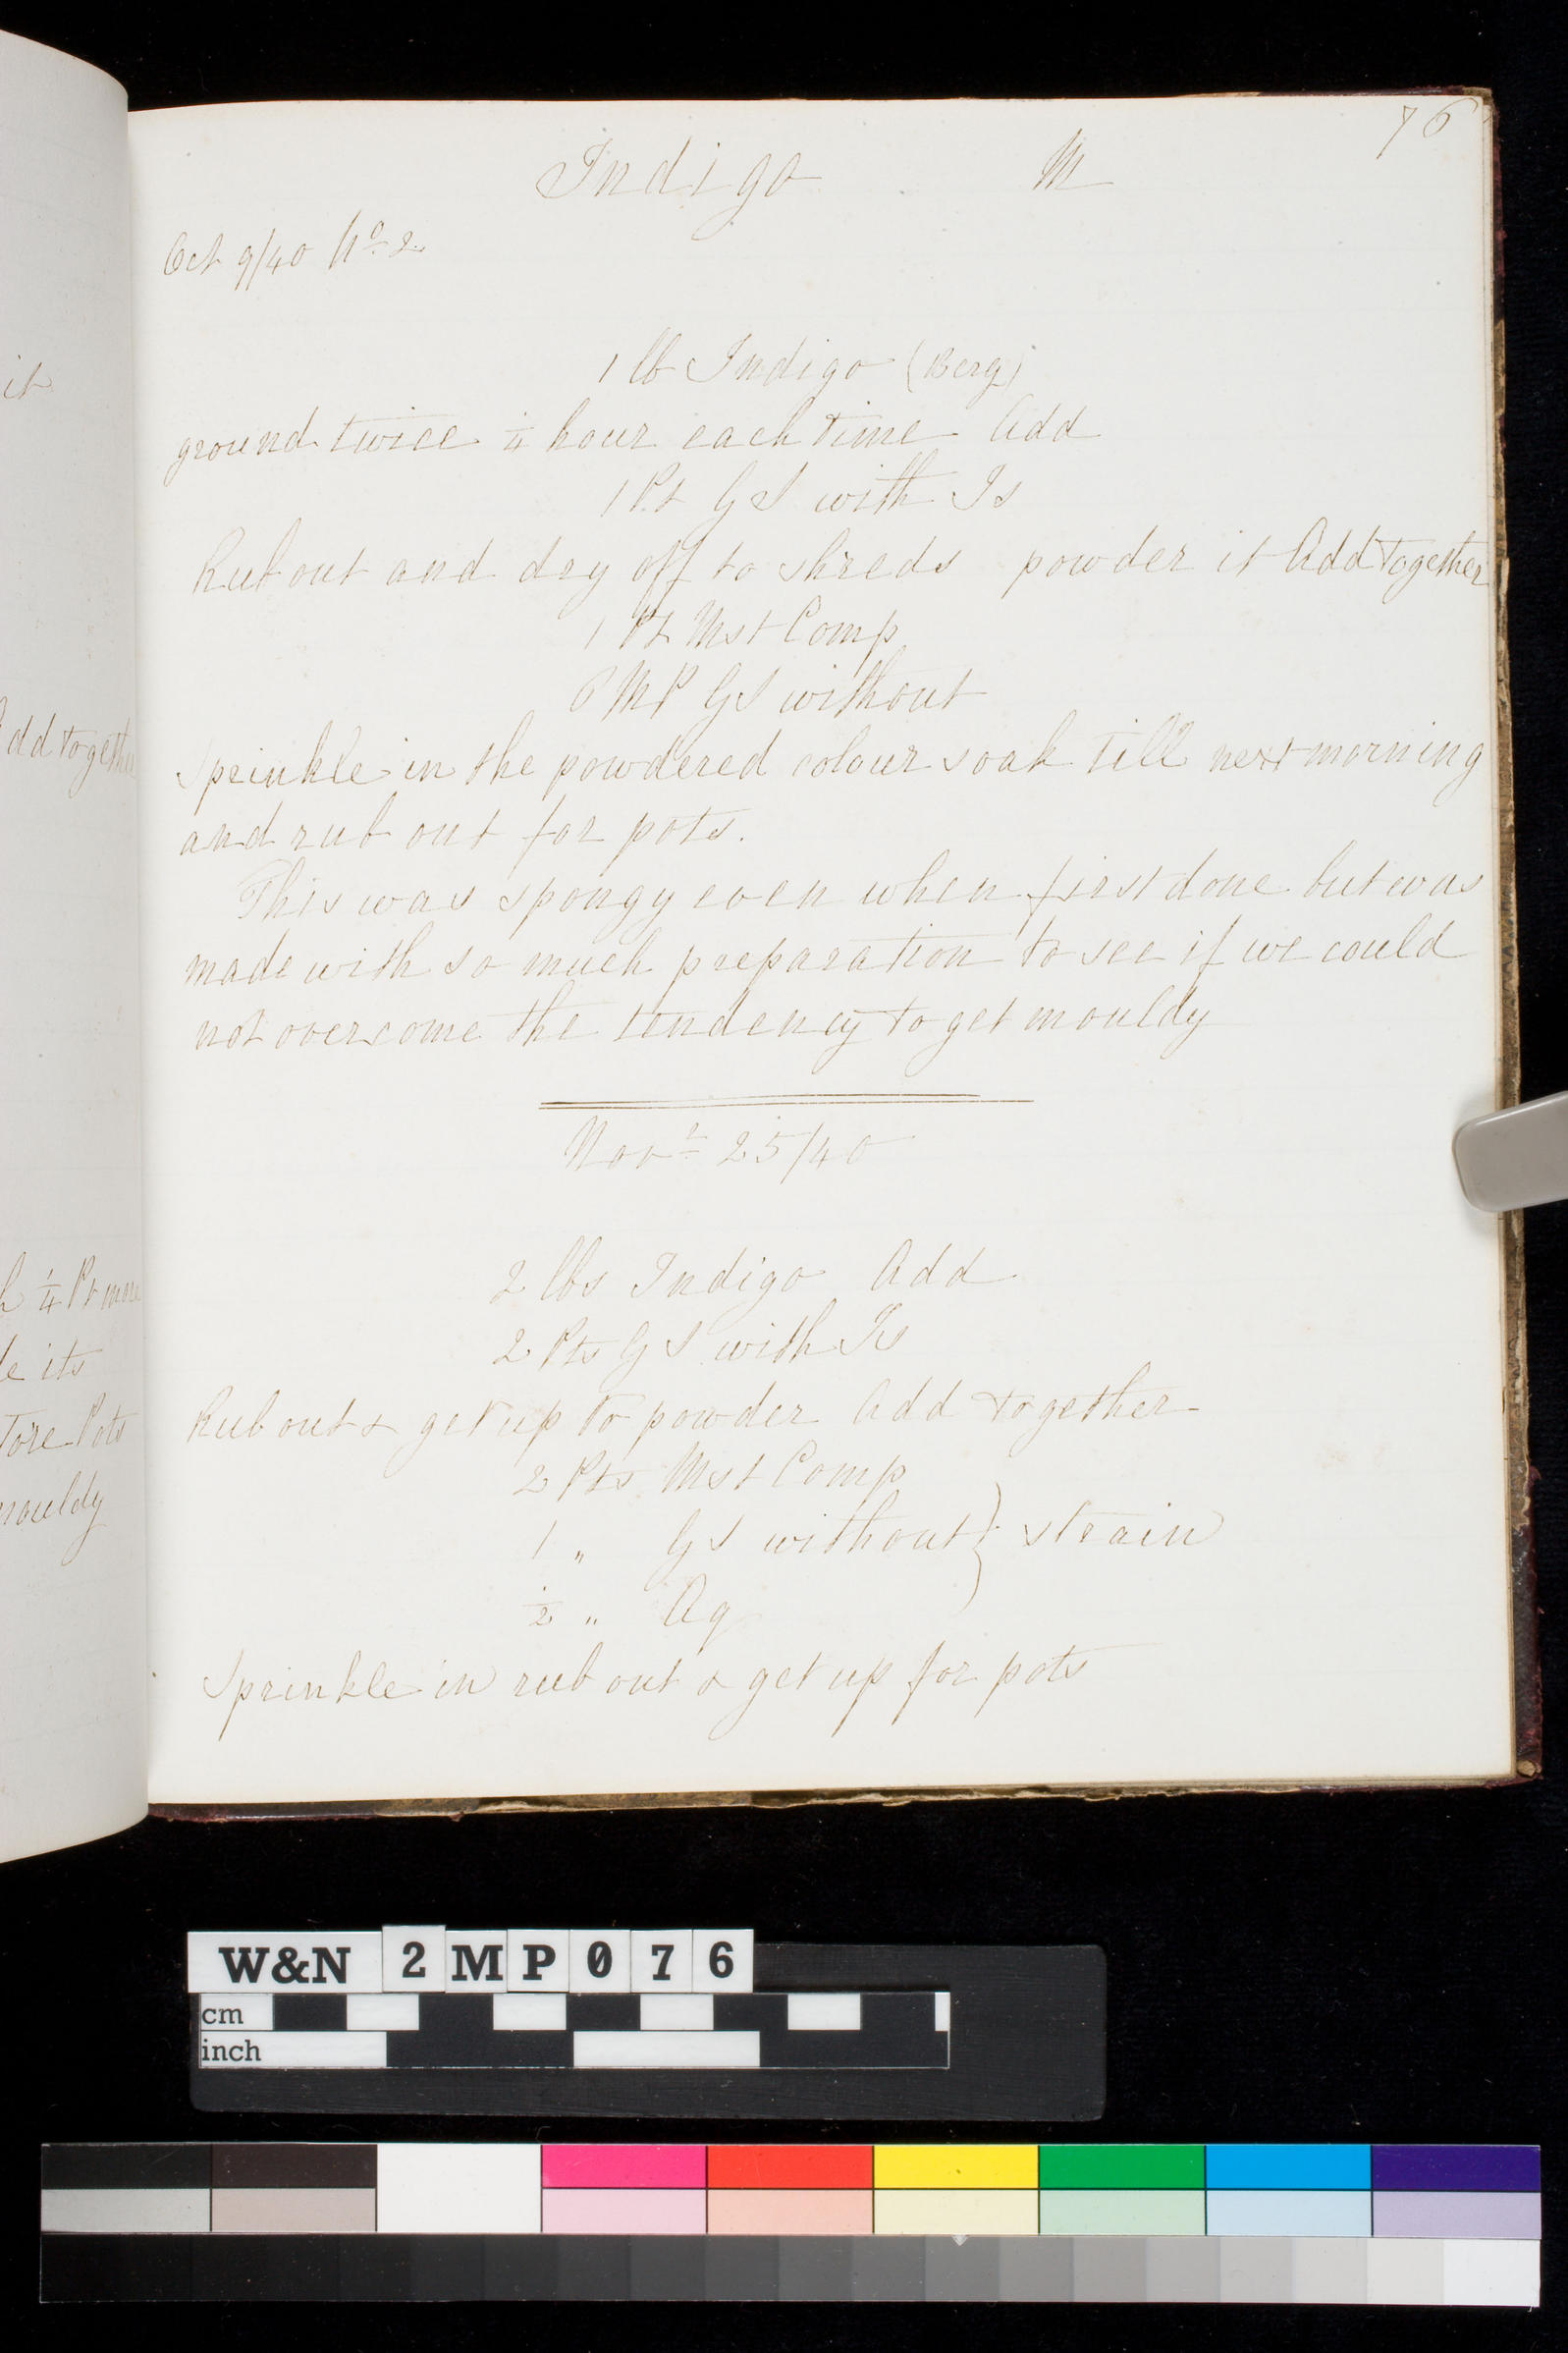 76
Indigo M
Oct 9/40 No 2
1 lb Indigo (Berg)
ground twice 1/4 hour each time Add
1 Pt GS with Is
Rub out and dry off to shreds powder it Add together
1 Pt Mst Comp
6 MP GS without
Sprinkle in the powdered colour soak till next morning
and rub out for pots.
This was spongy even when first done but was
made with so much preparation to see if we could
not overcome the tendency to get mouldy
Novr 25/40
2 lbs Indigo Add
2 Pts GS with Is
Rub out & get up to powder Add together
2 Pts Mst Comp
1 " GS without } strain
1/2 " Aq
Sprinkle in rub out & get up for pots
it
dd together
1/4 Pt more
its
Pots
mouldy
W&N 2MP076
cm
inch